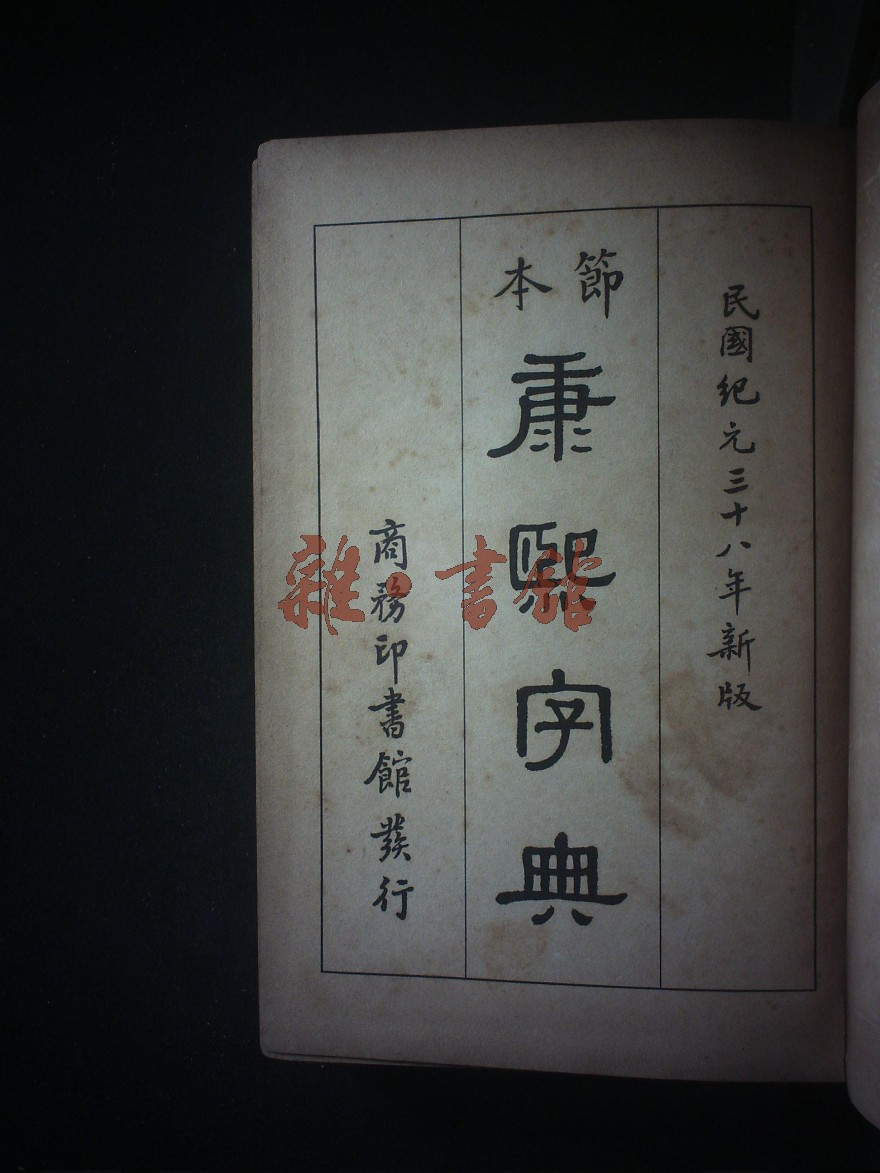 民國紀元三十八年新版
節本
康熙字典
商務印書館發行
雜·書館